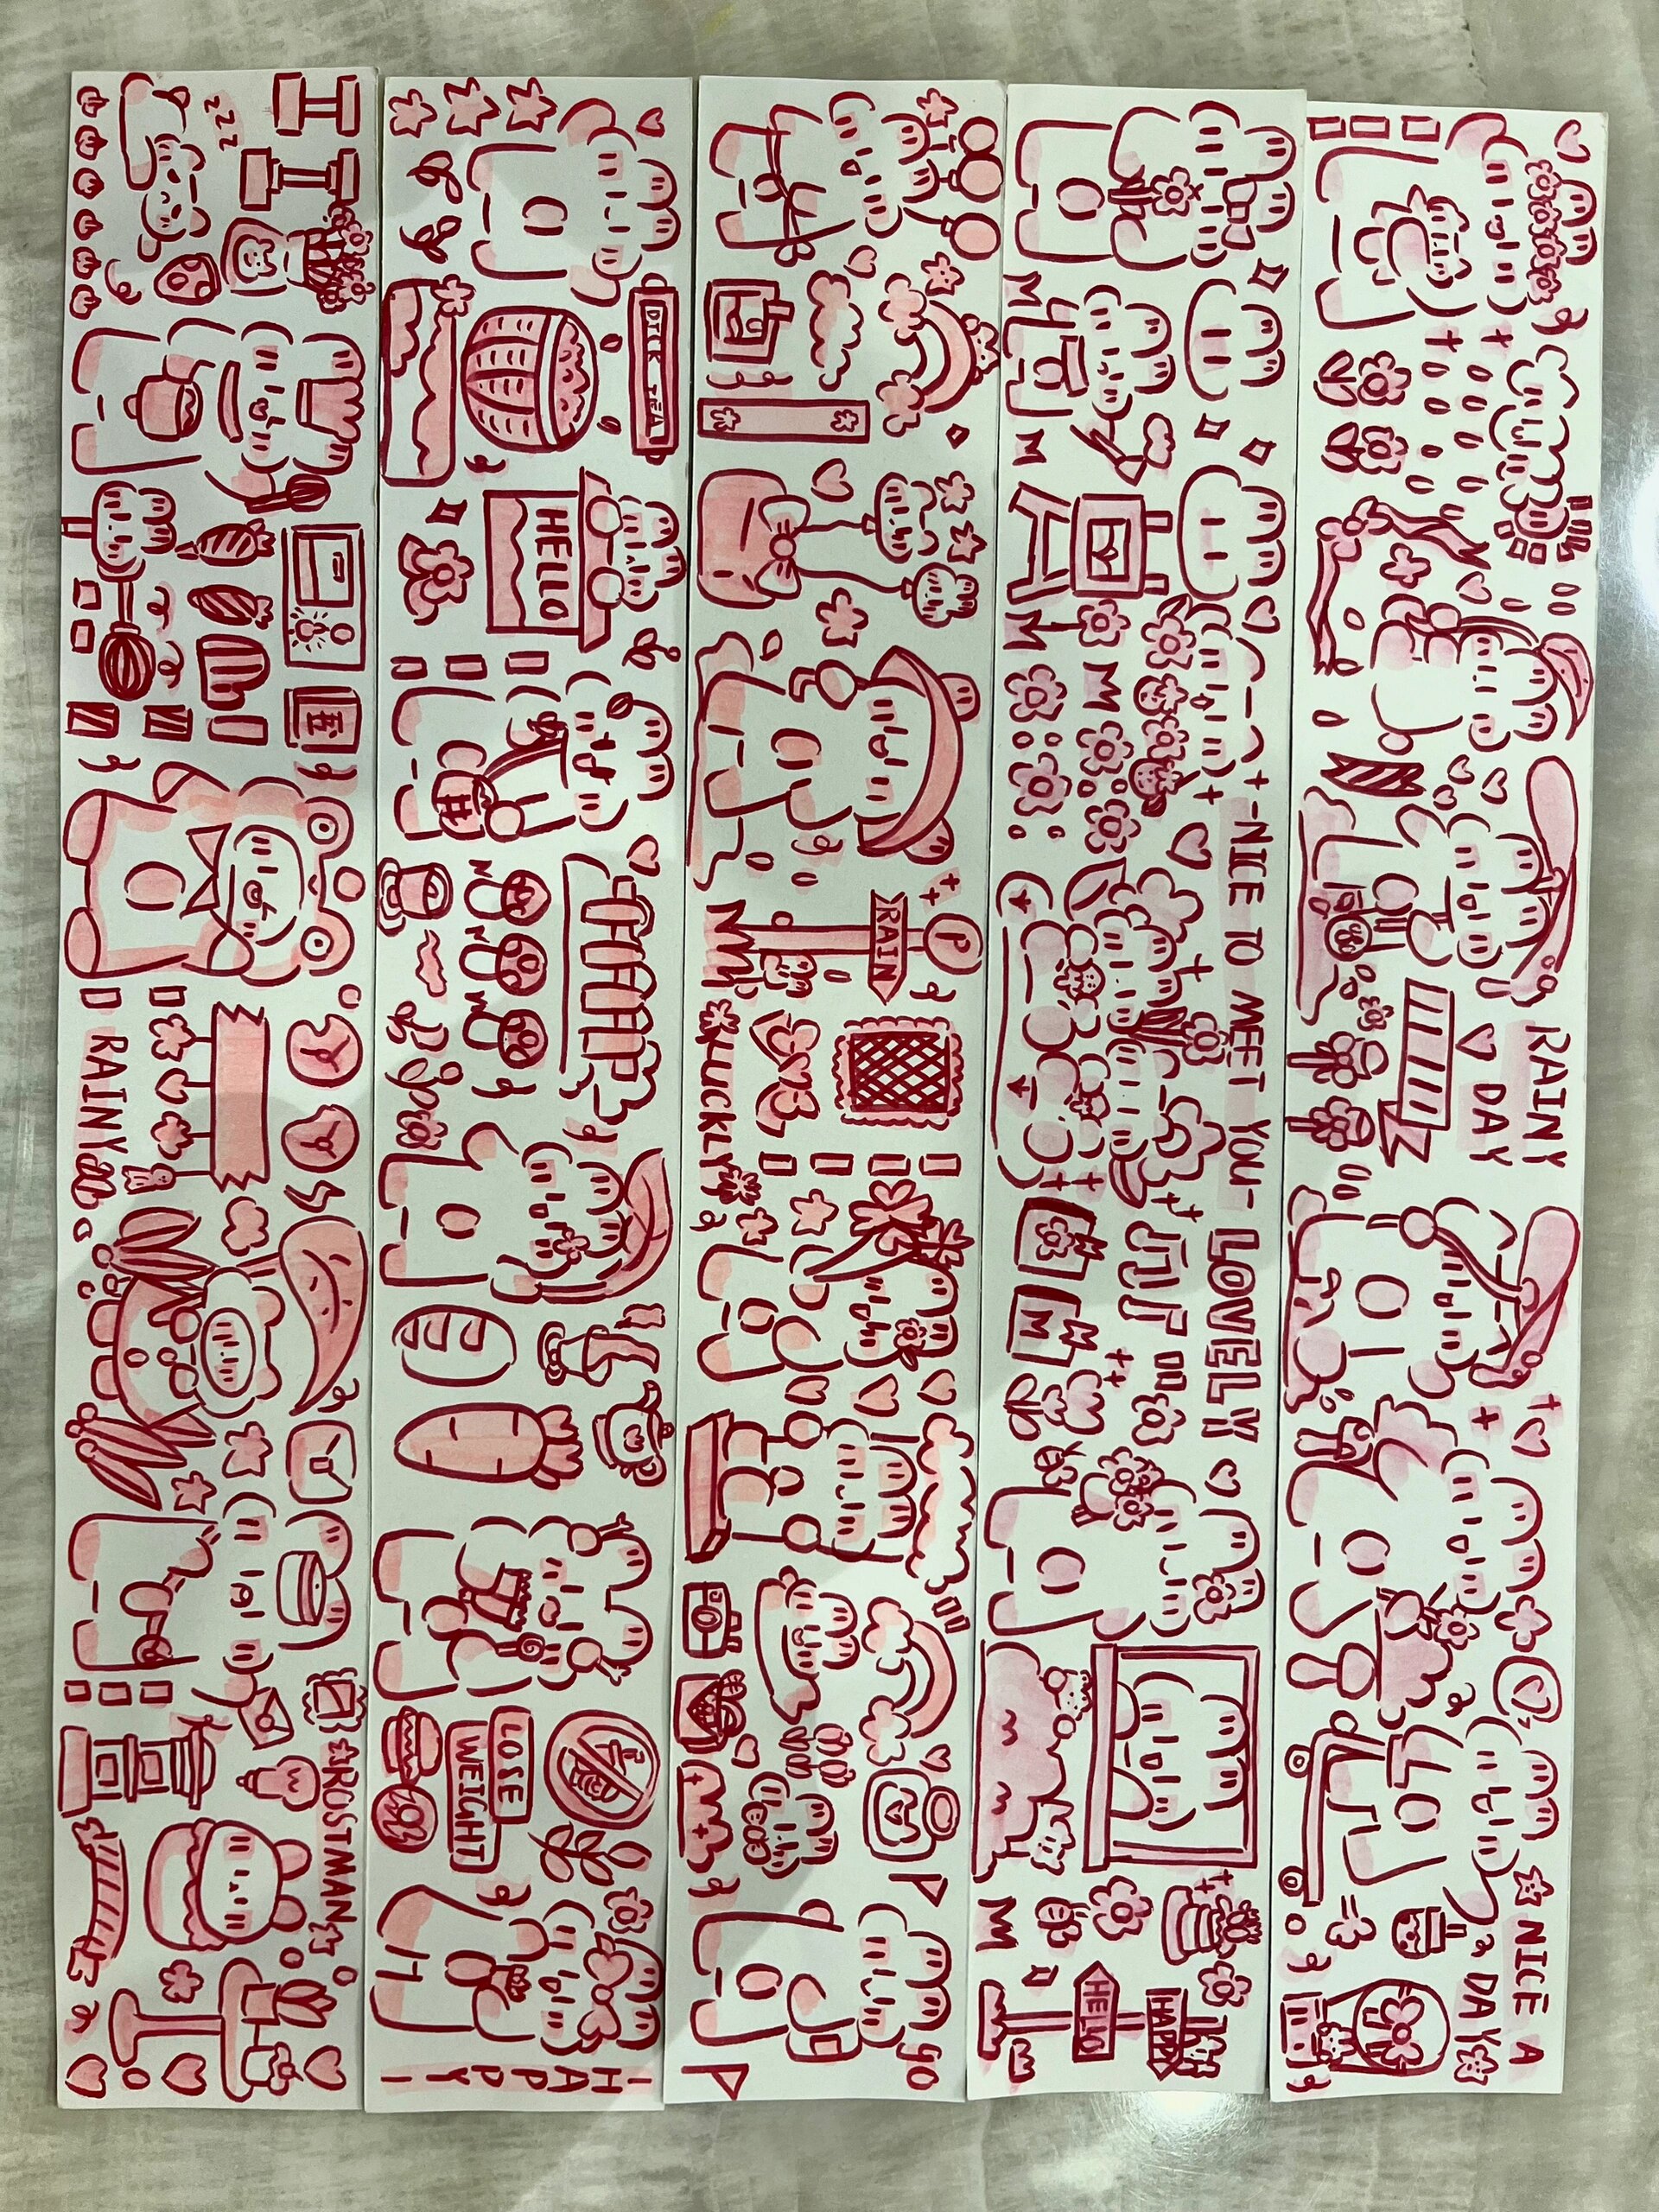 ZZZ
RAINY
KROSTMAN
DTER TEA
HELLO
LOSE
WEIGHT
-HAPPY-
RAIN
LUCKLY
GO
-NICE TO MEET YOU-
LOVELY
HELLO
HAPPY
RAINY
DAY
NICE A
DAY